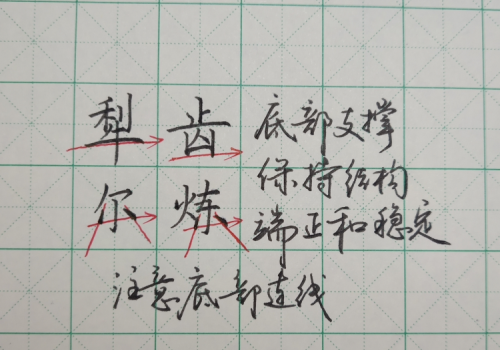 犁 齿
尔 炼
底部支撑
保持结构
端正和稳定
注意底部连线